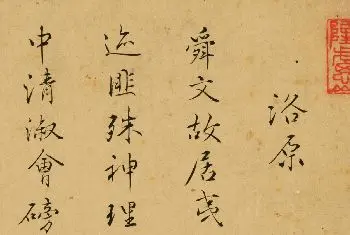 洛原
舜文故居夷
迹匪殊神理
中清淑會磅